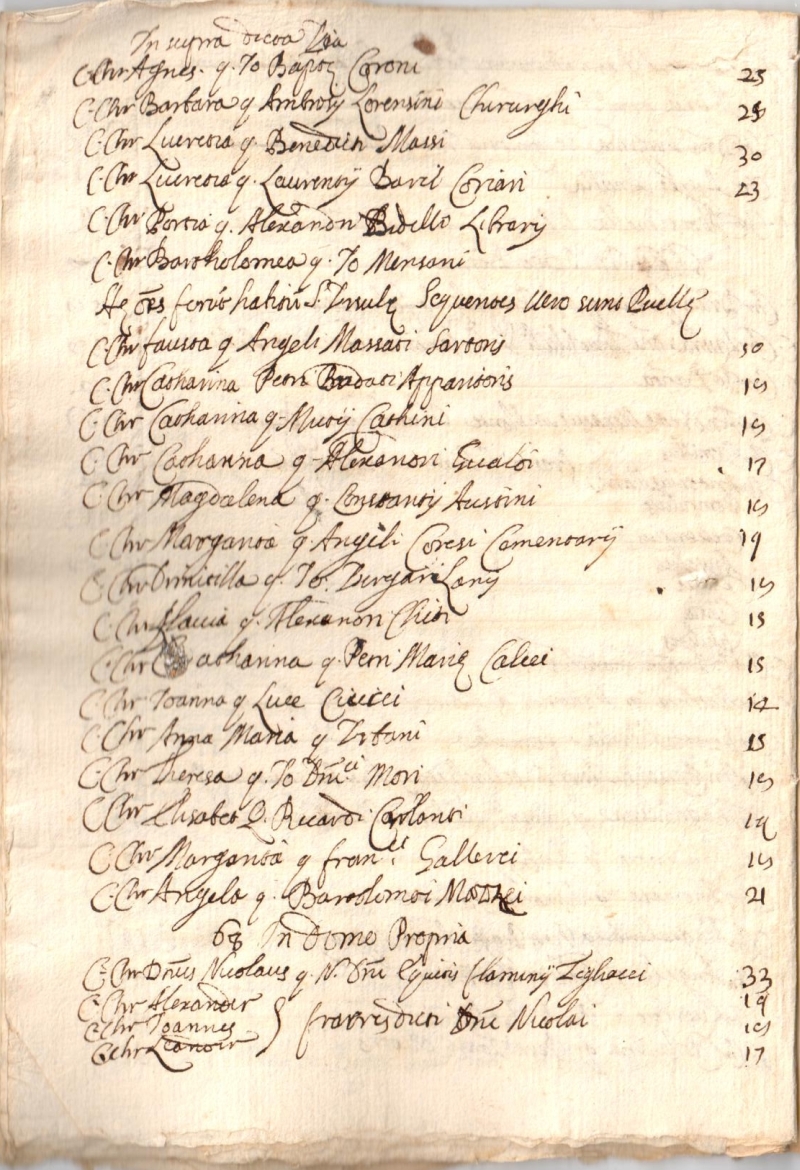 In supra dicta Via
C. Chr Agnes. q. Jo Bapt Coroni 25
C. Chr Barbara q Ambrosij Lorensini Chirurghi 25
C. Chr Lucretia q. Benedicti Massi 30
C. Chr Lucretia q. Laurentij Coriari 23
C. Chr Portia q. Alexandri Bidello Librarij
C. Chr Bartholomea q. Jo Mensani
S. Ursulę Sequentes vero sunt Puellę
C. Chr fausta q Angeli Massari Sartoris 30
C. Chr Catharina Petri Apparitoris 16
C. Chr Catharina q. Mutij Cathini 16
C. Chr Catharina q. Alexandri Gualdi 17
C. Chr Magdalena q. Constantij Austini 16
C. Chr Margarita q Angeli Coresi Cementarij 19
C. Chr Domitilla q. Jo. Lanij 16
C. Chr Flavia q. Alexandri 15
C. Chr Catharina q. Petri Marię Calcei 15
C. Chr Joanna q Luce Ciucci 14
C. Chr Anna Maria q Urbani 15
C. Chr Theresa q. Jo Dmci Mori 16
C. Chr Elisabet Q. Ricardi 19
C. Chr Margarita q franci Gallerei 16
C. Chr Angela q. Bartolomei 21
68 In Domo Propria
C. Chr Dnus Nicolaus q. N. Dni Equitis Flaminij 33
C. Chr Alexander 19
C. Chr Joannes } fratres dicti Dni Nicolai 16
C. Chr Leander 17